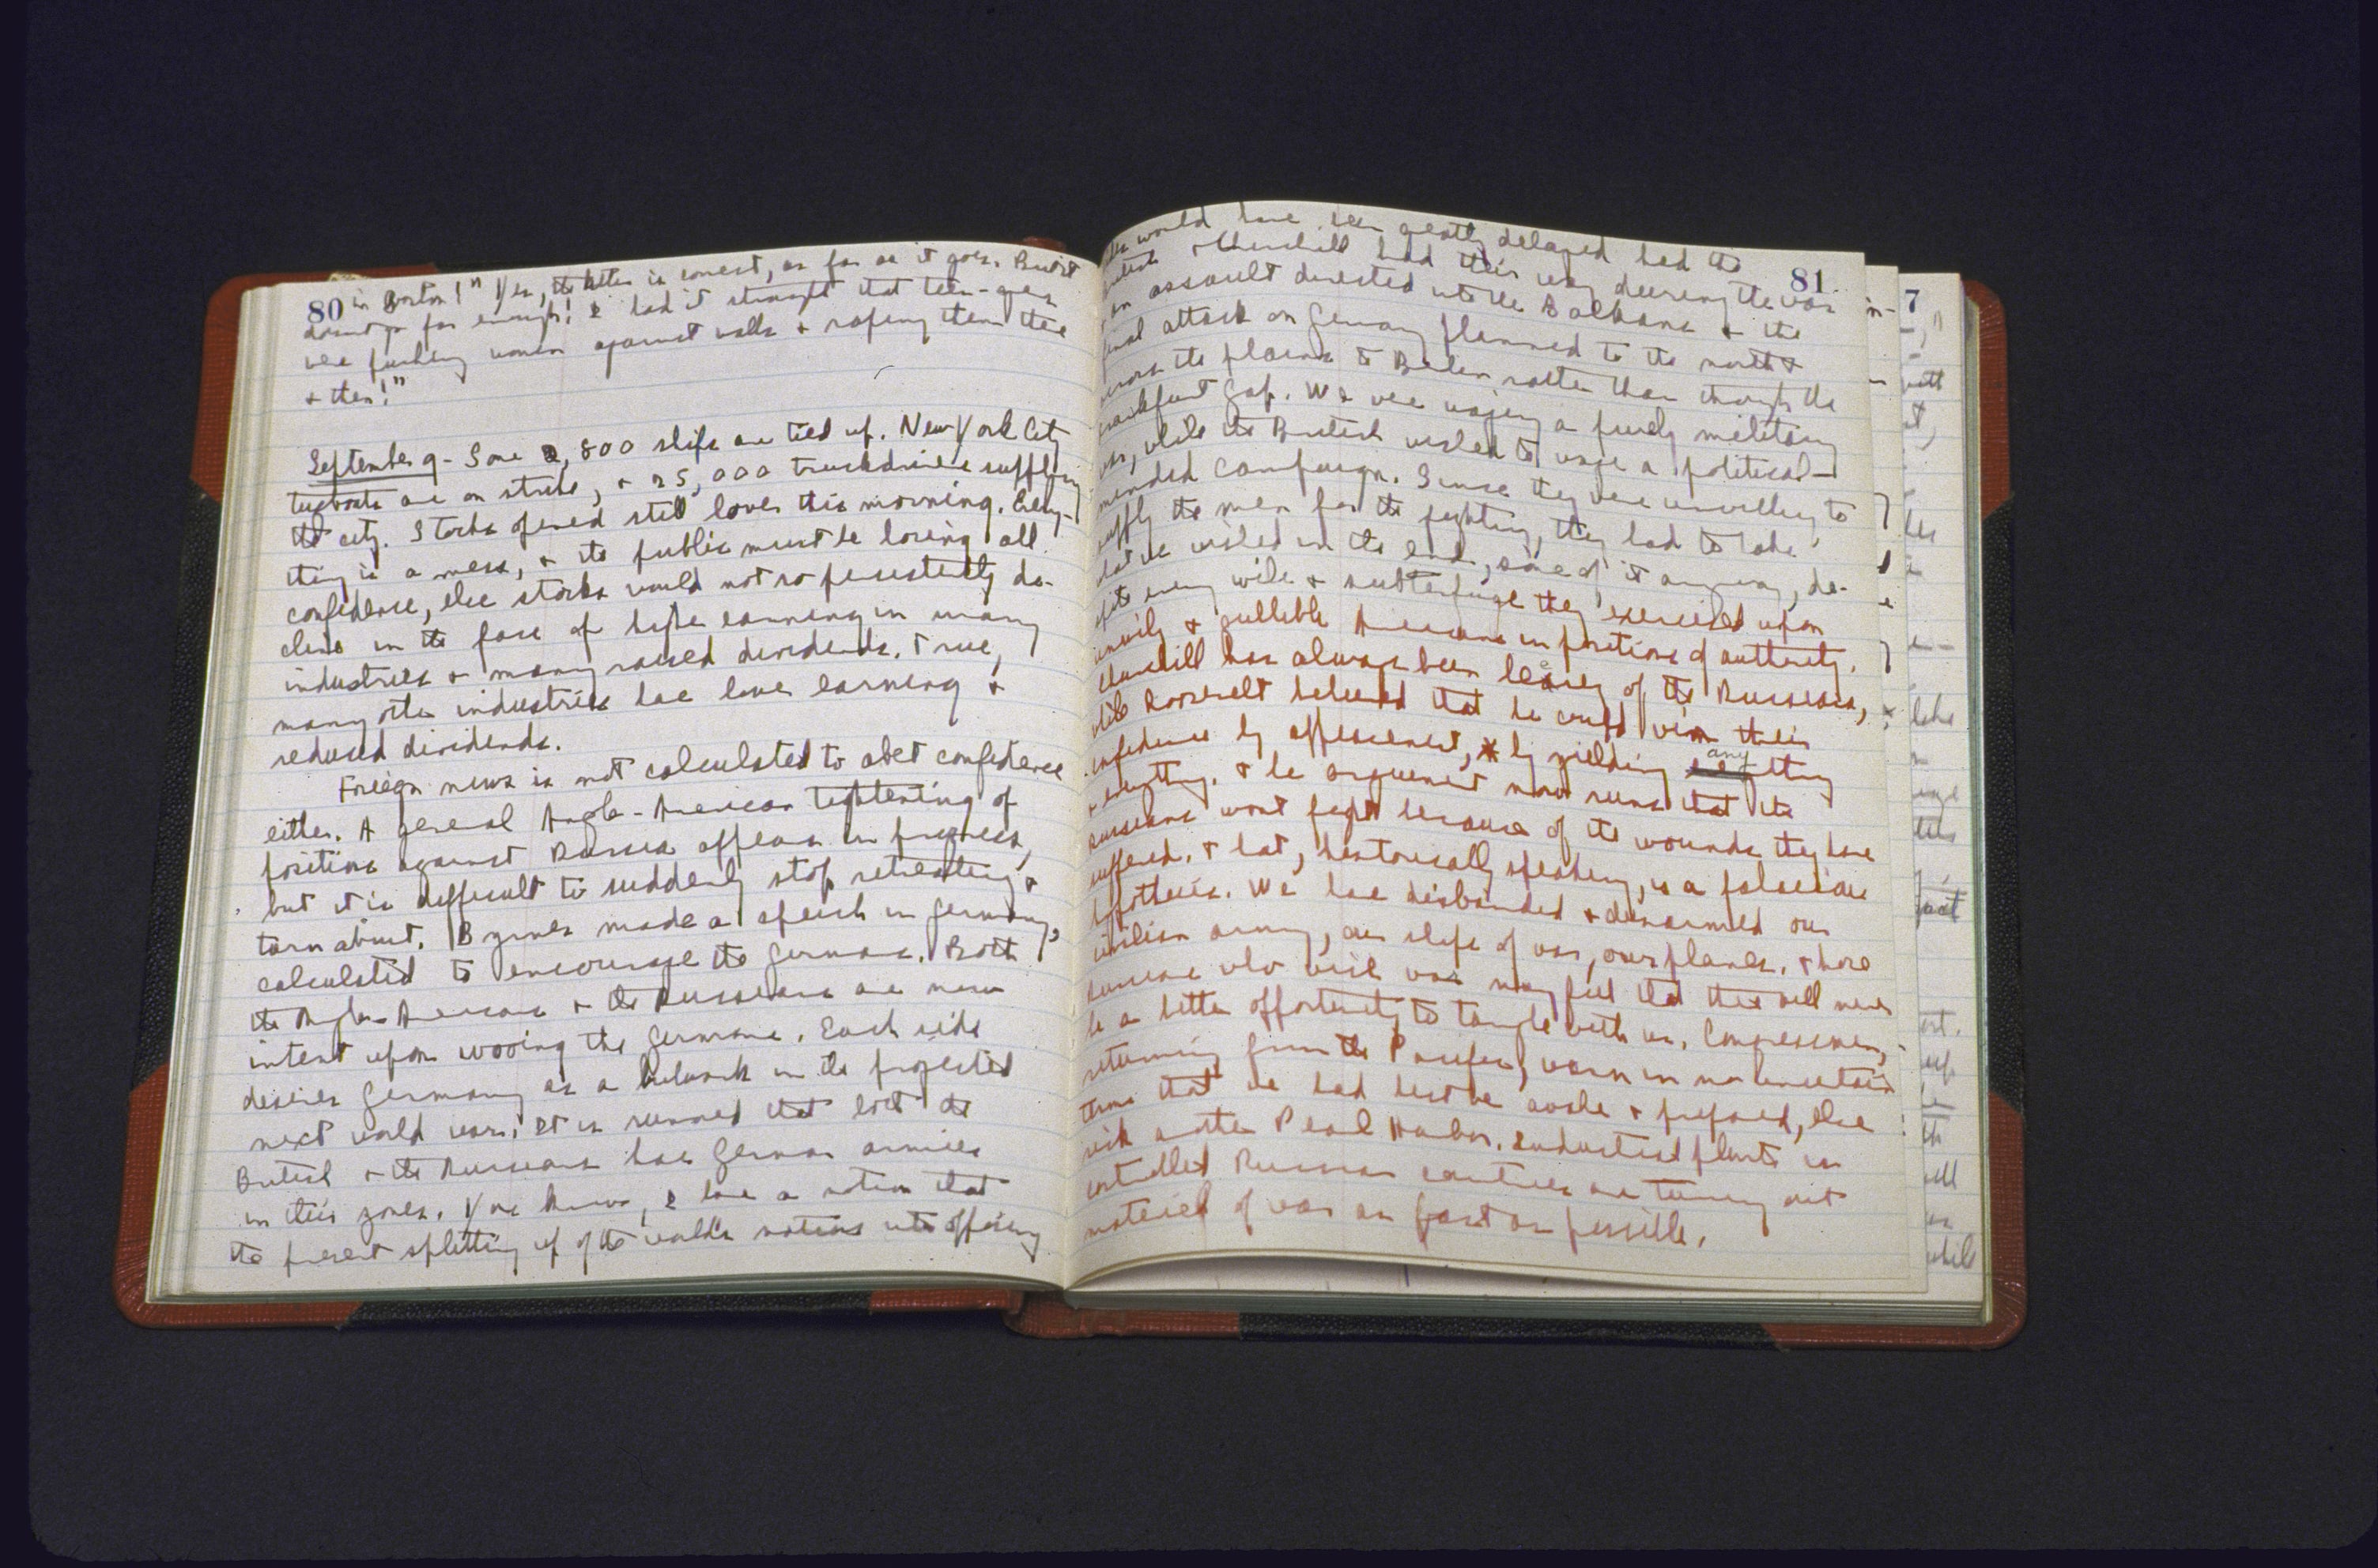 80 in Boston!" Yes, the letter is honest, as far as it goes. But it
doesn't go far enough! I had it straight that teen-agers
were pushing women against walls & raping them then
& there!"
September 9 - Some 2,800 ships are tied up. New York City
tugboats are on strike, & 25,000 truckdrivers supplying
the city. Stocks opened still lower this morning. Every-
thing is a mess, & the public must be losing all
confidence, else stocks would not so persistently de-
cline in the face of higher earnings in many
industries & many raised dividends. True,
many other industries have lower earnings &
reduced dividends.
Foreign news is not calculated to abet confidence
either. A general Anglo-American tightening of
positions against Russia appears in progress,
but it is difficult to suddenly stop retreating &
turn about. Byrnes made a speech in Germany,
calculated to encourage the Germans. Both
the Anglo-Americans & the Russians are now
intent upon wooing the Germans. Each side
desires Germany as a bulwark in the projected
next world war. It is rumored that both the
British & the Russians have German armies
in their zones. You know, I have a notion that
the present splitting up of the world's nations into opposing
81
would have been greatly delayed had the
British & Churchill had their way during the war
an assault directed into the Balkans & the
final attack on Germany planned to the north &
across the plains to Berlin rather than through the
Frankfurt Gap. We were waging a purely military
war, while the British wished to wage a political-
minded campaign. Since they were unwilling to
supply the men for the fighting, they had to take
what we wished in the end, some of it anyway, de-
spite every wile & subterfuge they exercised upon
& gullible Americans in positions of authority.
Churchill has always been leary of the Russians,
while Roosevelt believed that he could win their
confidence by appeasement, by yielding any thing
& everything. & the arguement now runs that the
Russians wont fight because of the wounds they have
suffered. & that, historically speaking, is a fallacious
hypothesis. We have disbanded & disarmed our
civilian army, our ships of war, our planes. & those
Russians who wish war may feel that there will never
be a better opportunity to tangle with us. Congressmen,
returning from the Pacific, warn in no uncertain
terms that we had best be awake & prepared, else
risk another Pearl Harbor. Industrial plants in
controlled Russian countries are turning out
materiel of war as fast as possible.
7